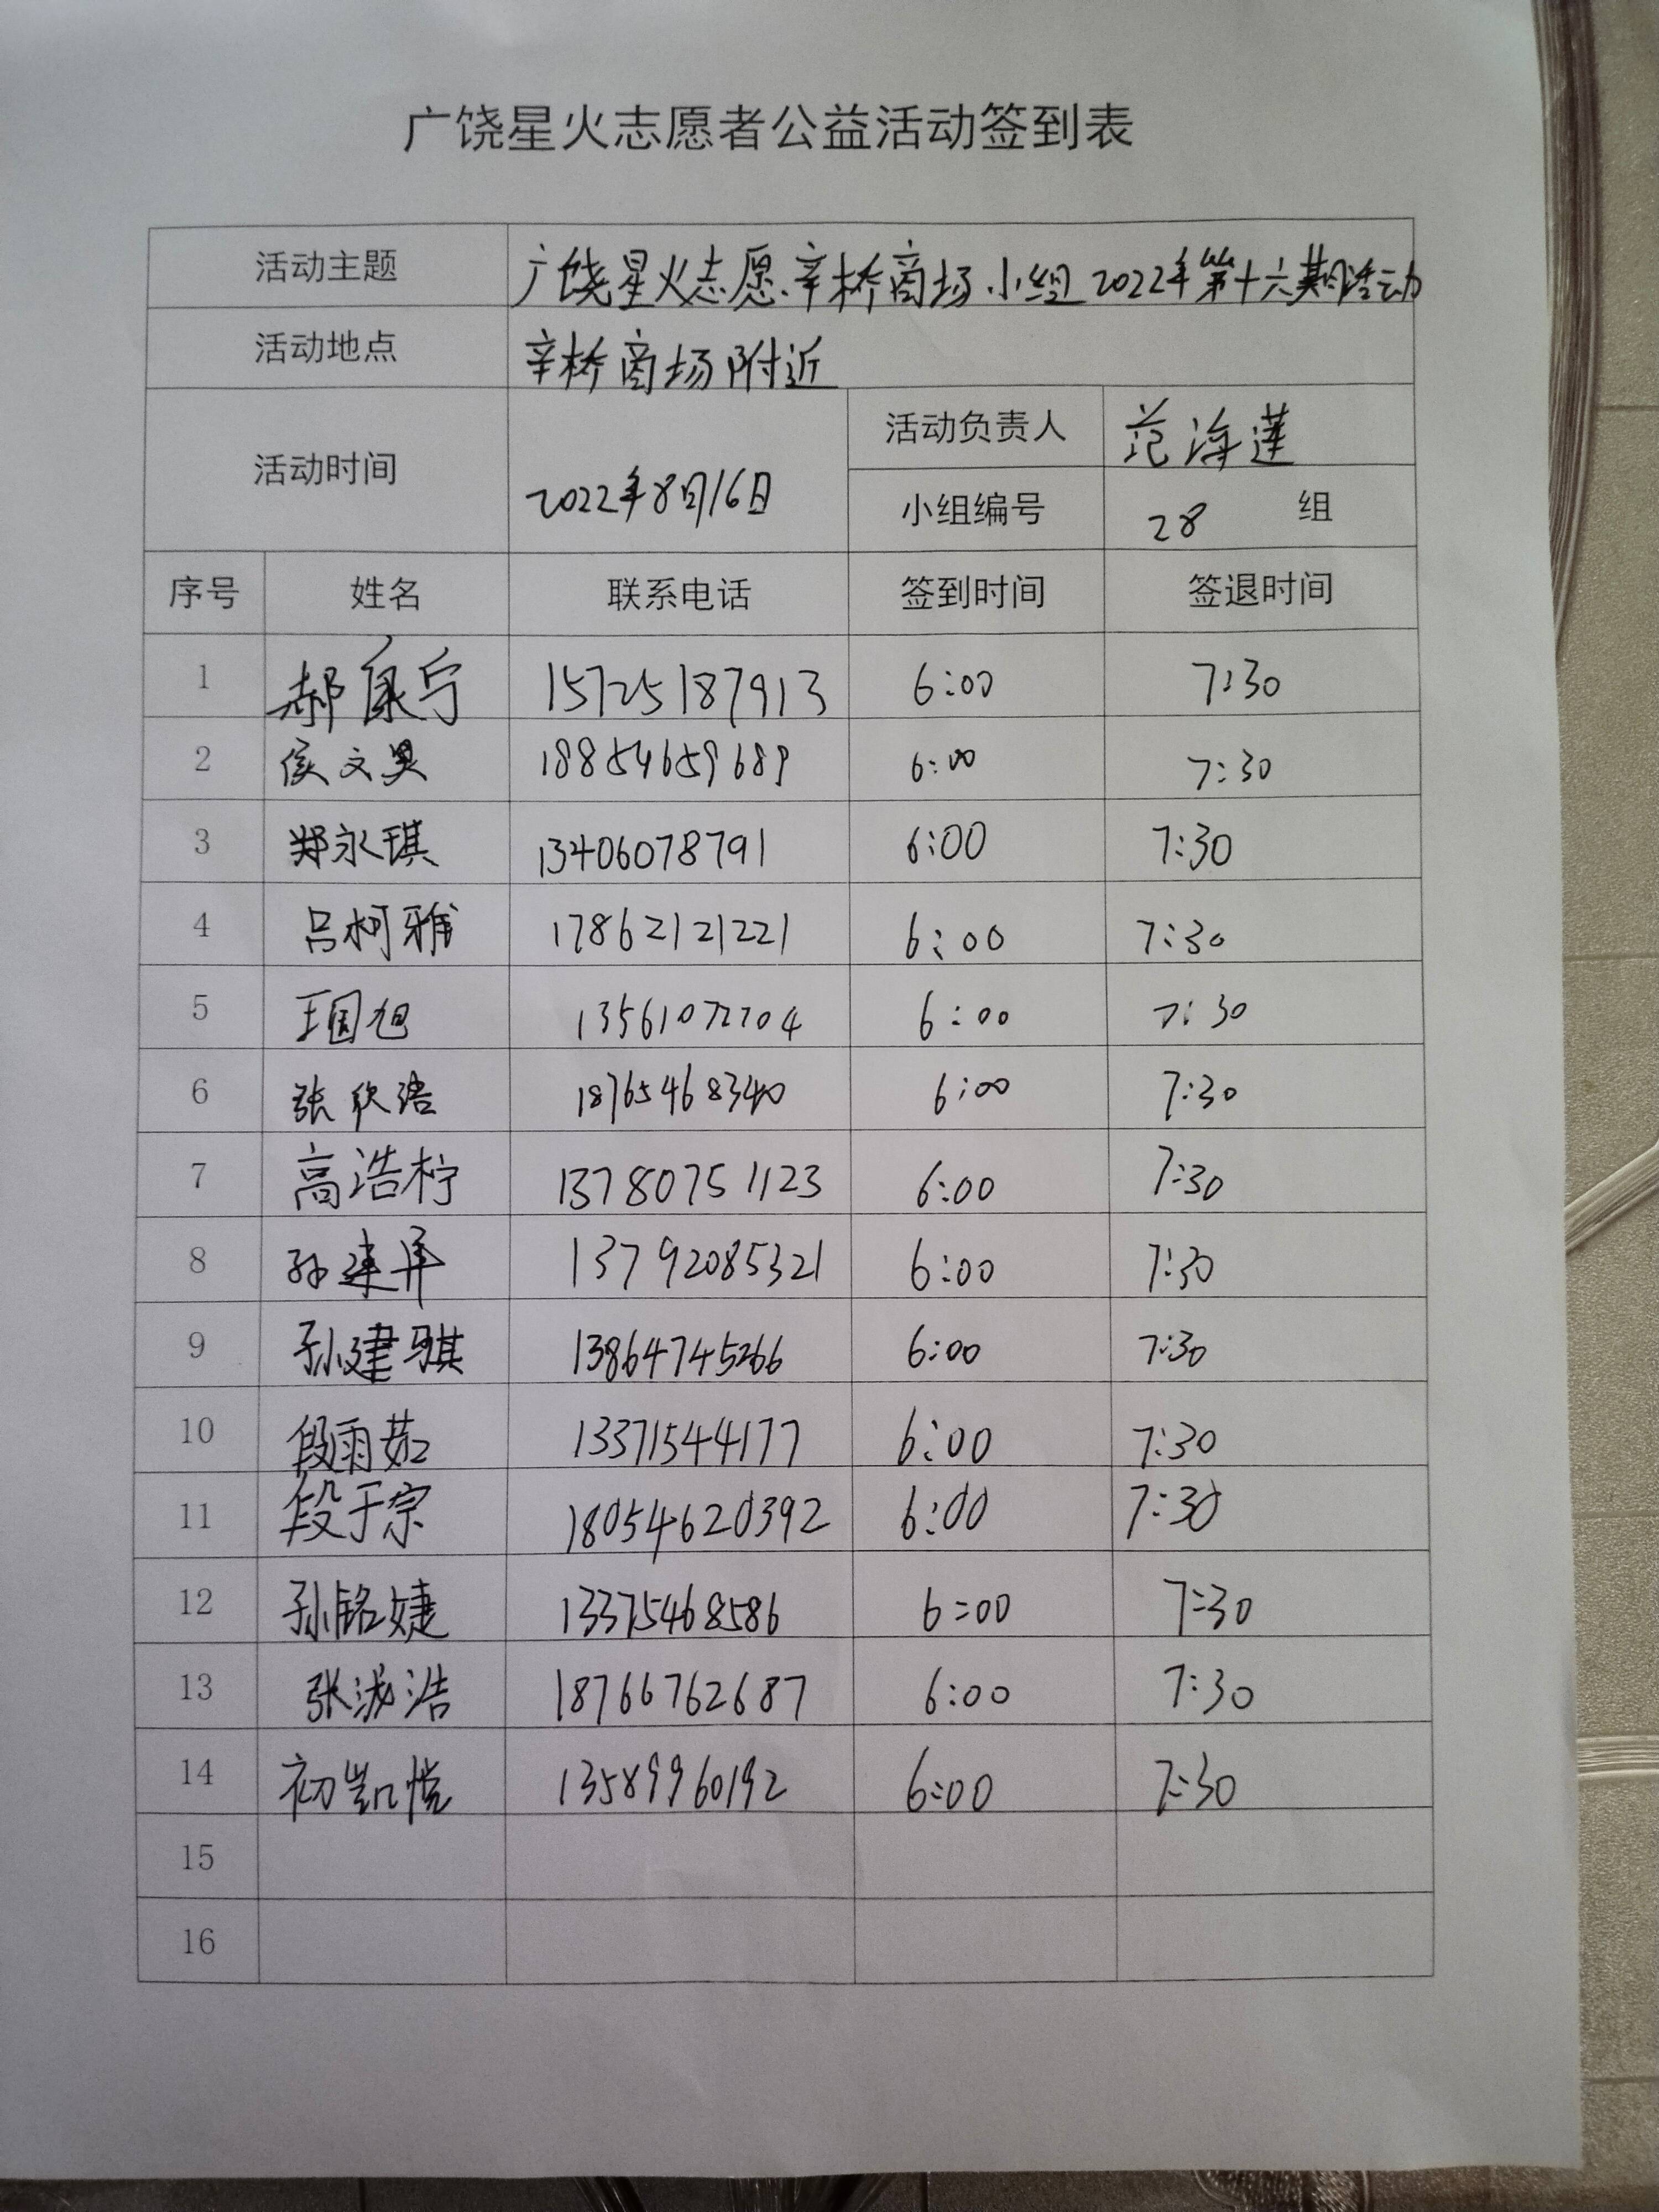 广饶星火志愿者公益活动签到表
活动主题 广饶星火志愿辛桥商场小组2022年第十六期活动
活动地点 辛桥商场附近
活动时间 2022年8月16日 活动负责人 范海莲
小组编号 28 组
序号 姓名 联系电话 签到时间 签退时间
1 郝康宁 15725187913 6:00 7:30
2 侯文昊 18854659689 6:00 7:30
3 郑永琪 13406078791 6:00 7:30
4 吕柯雅 17862121221 6:00 7:30
5 王国旭 13561072704 6:00 7:30
6 张欣浩 18765468340 6:00 7:30
7 高浩柠 13780751123 6:00 7:30
8 13792085321 6:00 7:30
9 孙建骐 13864745266 6:00 7:30
10 段雨茹 13371544177 6:00 7:30
11 段于宗 18054620392 6:00 7:30
12 孙铭婕 13375468586 6:00 7:30
13 18766762687 6:00 7:30
14 初凯悦 13589960192 6:00 7:30
15
16